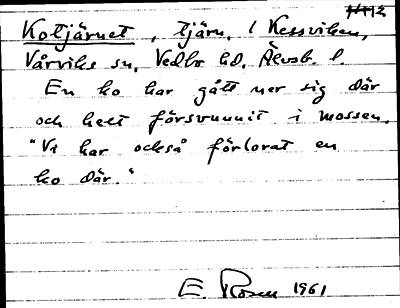 Kotjärnet, tjärn, i Kessviken,
Vårviks sn, Vedbo hd, Älvsb. l.
En ko har gått ner sig där
och helt försvunnit i mossen.
"Vi har också förlorat en
ko där."
E. Rosen 1961